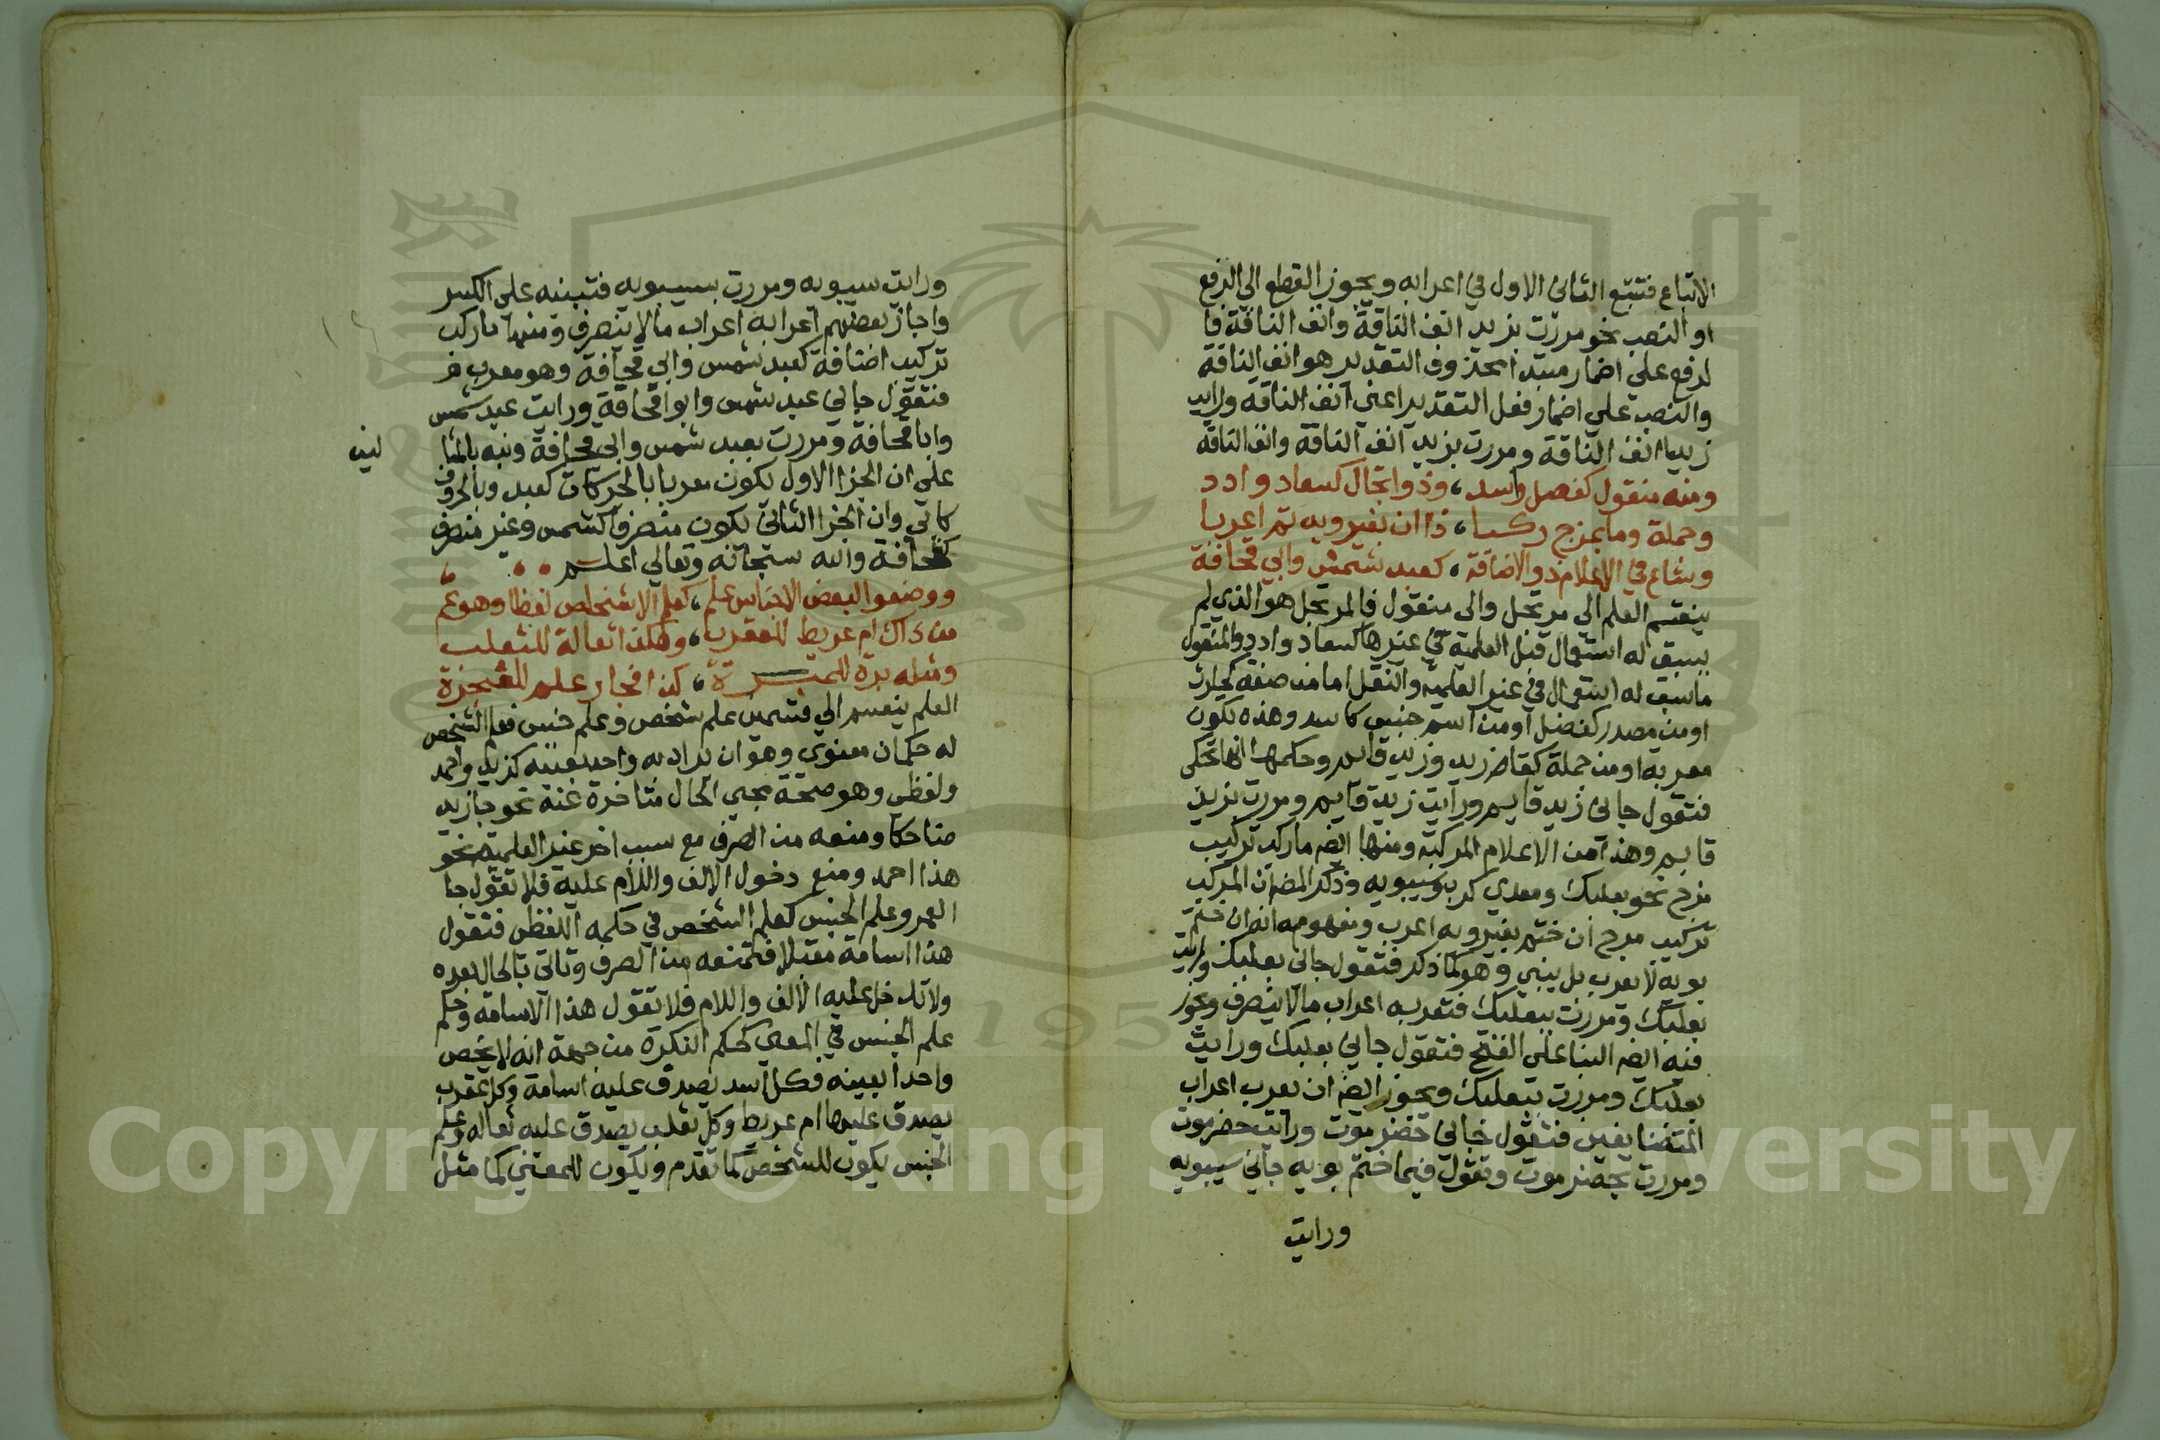 الاتباع فتتبع الثاني الاول في اعرابه ويجوز القطع الى الرفع
او النصب نحو مررت بزيد انف الناقة وانف الناقة فا
لرفع على اضمار مبتدا محذوف التقدير هو انف الناقة
والنصب على اضمار فعل التقدير اعني انف الناقة ورايت
زيدا انف الناقة ومررت بزيد انف الناقة وانف الناقة
ومنه منقول كفضل واسد، وذو ارتجال كسعاد وادد
وجملة وما بمزج ركبا، ذا ان بغير ويه تم اعربا
وشاع في الاعلام ذو الاضافة، كعبد شمس وابي قحافة
ينقسم العلم الى مرتجل والى منقول فالمرتجل هو الذي لم
يسبق له استعمال قبل العلمية في غيرها كسعاد وادد والمنقول
ما سبق له استعمال في غير العلمية والنقل اما من صفة كحارث
او من مصدر كفضل او من اسم جنس كاسد وهذه تكون
معربة او من جملة كقام زيد وزيد قايم وحكمها انها تحكى
فتقول جاني زيد قايم ورايت زيد قايم ومررت بزيد
قايم وهذه من الاعلام المركبة ومنها ايضا ما ركب تركيب
مزج نحو بعلبك ومعدي كرب وسيبويه وذكر المص ان المركب
تركيب مزج ان ختم بغير ويه اعرب ومفهومه انه ان ختم
بويه لا يعرب بل يبنى وهو كما ذكر فتقول جاني بعلبك ورايت
بعلبك ومررت ببعلبك فتعربه اعراب ما لا ينصرف ويجوز
فيه ايضا البنا على الفتح فتقول جاني بعلبك ورايت
بعلبك ومررت ببعلبك ويجوز ايضا ان يعرب اعراب
المتضايفين فتقول جاني حضرموت ورايت حضرموت
ومررت بحضرموت وتقول فيما ختم بويه جاني سيبويه
ورايت
ورايت سيبويه ومررت بسيبويه فتبنيه على الكسر
واجاز بعضهم اعرابه اعراب ما لا ينصرف ومنها ما ركب
تركيب اضافة كعبد شمس وابي قحافة وهو معرب
فتقول جاني عبد شمس وابو قحافة ورايت عبد شمس
وابا قحافة ومررت بعبد شمس وابي قحافة ونبه بالمثا
لين
على ان الجزا الاول يكون معربا بالحركات كعبد وبالحروف
كابي وان الجزا الثاني يكون منصرفا كشمس وغير منصرف
كقحافة والله سبحانه وتعالى اعلم
ووضعوا لبعض الاجناس علم، كعلم الاشخاص لفظا وهو عم
من ذاك ام عريط للعقرب، وهكذا ثعالة للثعلب
ومثله برة للمبرة، كذا فجار علم للفجرة
العلم ينقسم الى قسمين علم شخص وعلم جنس فعلم الشخص
له حكمان معنوي وهو ان يراد به واحد بعينه كزيد واحمد
ولفظي وهو صحة مجي الحال متاخرة عنه نحو جا زيد
ضاحكا ومنعه من الصرف مع سبب اخر غير العلمية نحو
هذا احمد ومنع دخول الالف واللام عليه فلا تقول جا
العمرو وعلم الجنس كعلم الشخص في حكمه اللفظي فتقول
هذا اسامة مقبلا فتمنعه من الصرف وتاتي بالحال بعده
ولا تدخل عليه الالف واللام فلا تقول هذا الاسامة وحكم
علم الجنس في المعنى كحكم النكرة من جهة انه لا يخص
واحدا بعينه فكل اسد يصدق عليه اسامة وكل عقرب
يصدق عليها ام عريط وكل ثعلب يصدق عليه ثعاله وعلم
الجنس يكون للشخص كما تقدم ويكون للمعني كما مثل